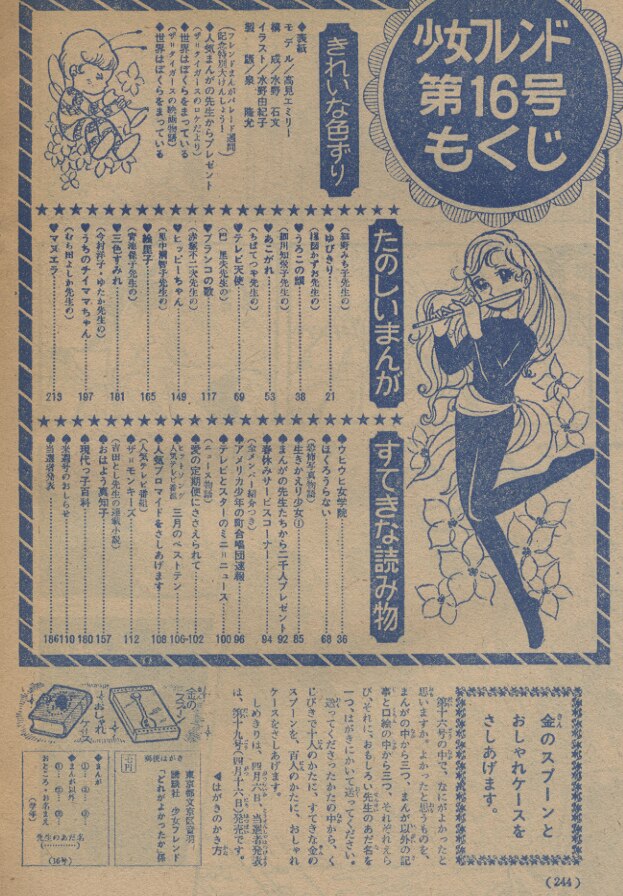 少女フレンド
第16号
もくじ
きれいな色ずり
◆表紙
モデル／高見エミリー
構　成／水野　石文
イラスト／水野由紀子
製　版／泉　隆光
(フレンドまんがパレード週間
記念特別大けんしょう！)
◆人気まんがの先生からプレゼント
(ザ=タイガースのロケだより)
◆世界はぼくらをまっている
(ザ=タイガースの映画物語)
◆世界はぼくらをまっている
たのしいまんが
(細野みち子先生の)
♥ゆびきり……21
(楳図かずお先生の)
♥うろこの顔……38
(細川知栄子先生の)
♥あこがれ……53
(ちばてつや先生の)
♥テレビ天使……69
(巴　里夫先生の)
♥ブランコの歌……117
(赤塚不二夫先生の)
♥ヒッピーちゃん……149
(里中満智子先生の)
♥絵里子……165
(青池保子先生の)
♥三色すみれ……181
(今村洋子・ゆたか先生の)
♥うちのチイママちゃん……197
(むら田よしか先生の)
♥マヌエラ……213
すてきな読み物
♠ウヒウヒ女学院……36
♠ほくろうらない……68
(恐怖写真物語)
♠生きかえり少女①……85
♠まんがの先生たちから二千人プレゼント……92
♠春休みサービスコーナー……94
(全メンバー紹介つき)
♠アメリカ少年の町合唱団速報……96
♠テレビとスターのミニ=ニュース……100
(ニュース物語)
♠愛の定期便にささえられて……102
♠三月のベストテン……106
♠人気ブロマイドをさしあげます……108
(人気テレビ番組)
♠ザ=モンキーズ……112
(吉田とし先生の連載小説)
♠おはよう真知子……157
♠現代っ子百科……180
♠来週号のおしらせ……110
♠当選者発表……186
金のスプーンと
おしゃれケースを
さしあげます。
第十六号の中で、なにがよかったと
思いますか。よかったと思うものを、
まんがの中から三つ、まんが以外の記
事と口絵の中から三つ、それぞれえら
び、それに、おもしろい先生のあだ名を
一つ、はがきにかいて送ってください。
送ってくださったかたの中から、く
じびきで十人のかたに、すてきな金の
スプーンを、百人のかたに、おしゃれ
ケースをさしあげます。
しめきりは、四月八日、当選者発表
は、第十九号(四月十六日発売)です。
◀はがきのかき方
金のスプーン
おしゃれケース
郵便はがき
東京都文京区音羽
講談社　少女フレンド
「どれがよかったか」係
◆まんが
①…②…③…
◆まんが以外
①…②…③…
おところ・お名まえ
(学年)
先生のあだ名
(………)
(16号)
(244)